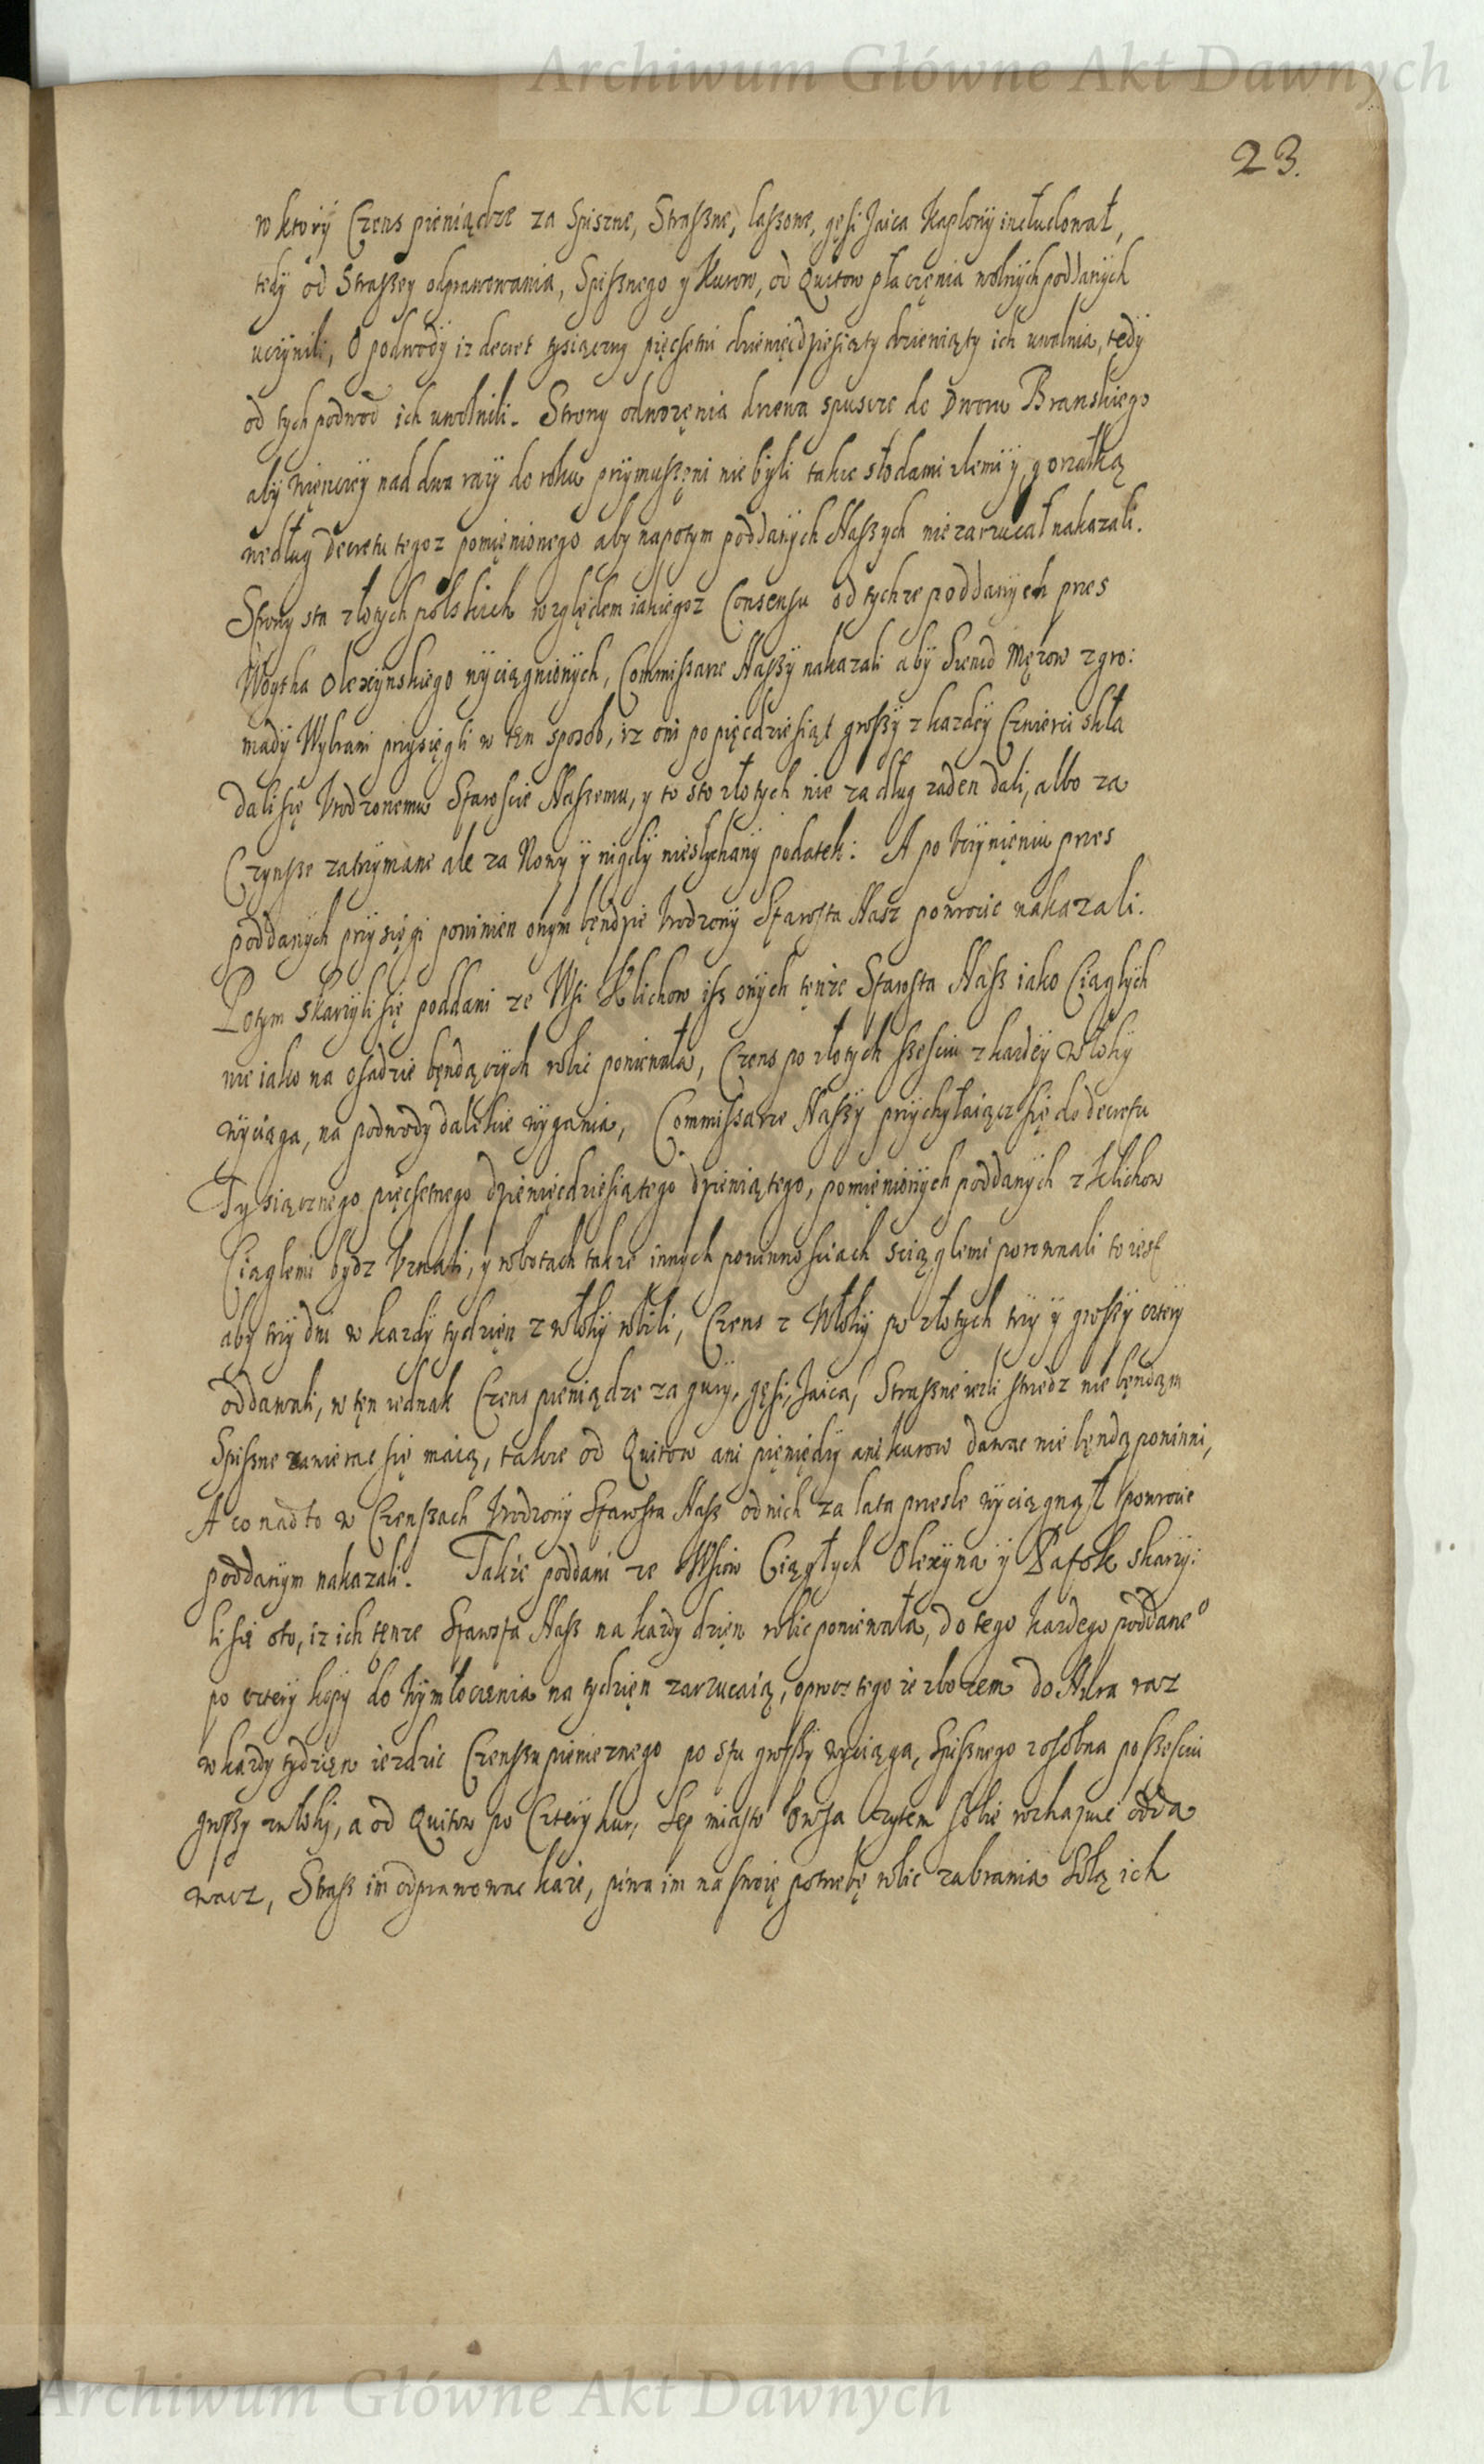 Archiwum Główne Akt Dawnych
23.
w ktorÿ Czens pieniądze za Spiszne, Straßne, laßone, gęsi Jaica Kaplony includował,
tedÿ od Straßey odprawowania, Spißnego y Kurow, od Quitow płaczęnia wolnÿch poddanÿch
uczÿnili, O podwodÿ iz decret tysiączny pięcsetni dzieniędpiesiąty dzieniąty ich uwalnia, tedÿ
od tych podwod ich uwolnili. Strony odwozęnia drzewa spuscze do Dworu Branskiego
abÿ więncey nad dwa razÿ do roku przÿmußęni nie bÿli takze słodami zlemi y gorzałką
według Decretu tegoz pomięnionego aby napotym poddanÿch Naßych nie zarzucał nakazali.
Strony sta złotych polskich względem iakiegoz Consensu od tychze poddanych przes
Woytha Olexÿnskiego wÿciągnionÿch, Commißarze Naßÿ nakazali abÿ Siedm Męzow z gro:
madÿ Wybrani przysięgli w ten sposob, iz oni po pięcdziesiąt groszÿ z kazdeÿ Czwierci skła
dali się Urodzonemu Staroscie Naszemu, y to sto złotych nie za dług zaden dali, albo za
Czynße zatrzymane ale za Nowy ÿ nigdÿ niesłychanÿ podatek: A po Uczÿnięniu przes
poddanych przysięgi powinien onym będzie Urodzonÿ Starosta Nasz powrocic nakazali.
Potym skarzÿli się poddani ze Wsi Klichow ißs onÿch tęnze Starosta Naß iako Ciągłÿch
nie iako na osadzie będącÿch robic poniewala, Czens po złotÿch szesciu z kazdeÿ Włokÿ
wÿciąga, na podwody dalekie wÿgania, Commissarze Naßÿ przÿchÿlaiącz się do decretu
Tysiącznego pięcsetnego dzieniędziesiątego dzieniątego, pomięnionÿch poddanÿch z Klichow
Ciąglemi bydz Uznali, y robotach takze innych powinnosciach sciąglemi porownali to iest
abÿ trzÿ dni w kazdÿ tydzien z włokÿ robili, Czens z Włokÿ po złotych trzÿ ÿ groszÿ czterÿ
oddawali, w tęn iednak Czens pieniądze za gusÿ, gęsi, Jaica, Straßne iezli stredz nie będą m
Spißne zawierac się maią, takze od Quitow ani pięniędzÿ ani kurow dawac nie będą powinni,
A co nad to w Czenßach Urodzonÿ Starosta Naß od nich za lata przesle wÿciągnął powrocic
poddanÿm nakazali. Takze poddani ze Wsiow Ciągłÿch Olexÿna ÿ Patok skarzÿ:
li się oto, iz ich tęnze Starosta Naß na kazdy dzięn robic poniewala, do tego kazdego poddane°
po czterÿ kopÿ do Wÿmłocenia na tÿdzięn zarzucaią, oprocz tego ze zbozem do raz
w kazdy tydzięn iezdzic Czenßu pienieznego po stu großÿ wyciąga, Spißnego zosobna po szesciu
großy z włokÿ, a od Quitow po Czterÿ kur, Sep miasto Owsa zytem sobie rozkazuie odda
wacz, Straß im odprawowac kaze, piwa im na swoię potrzebę robic zabrania Solą ich
Archiwum Główne Akt Dawnych